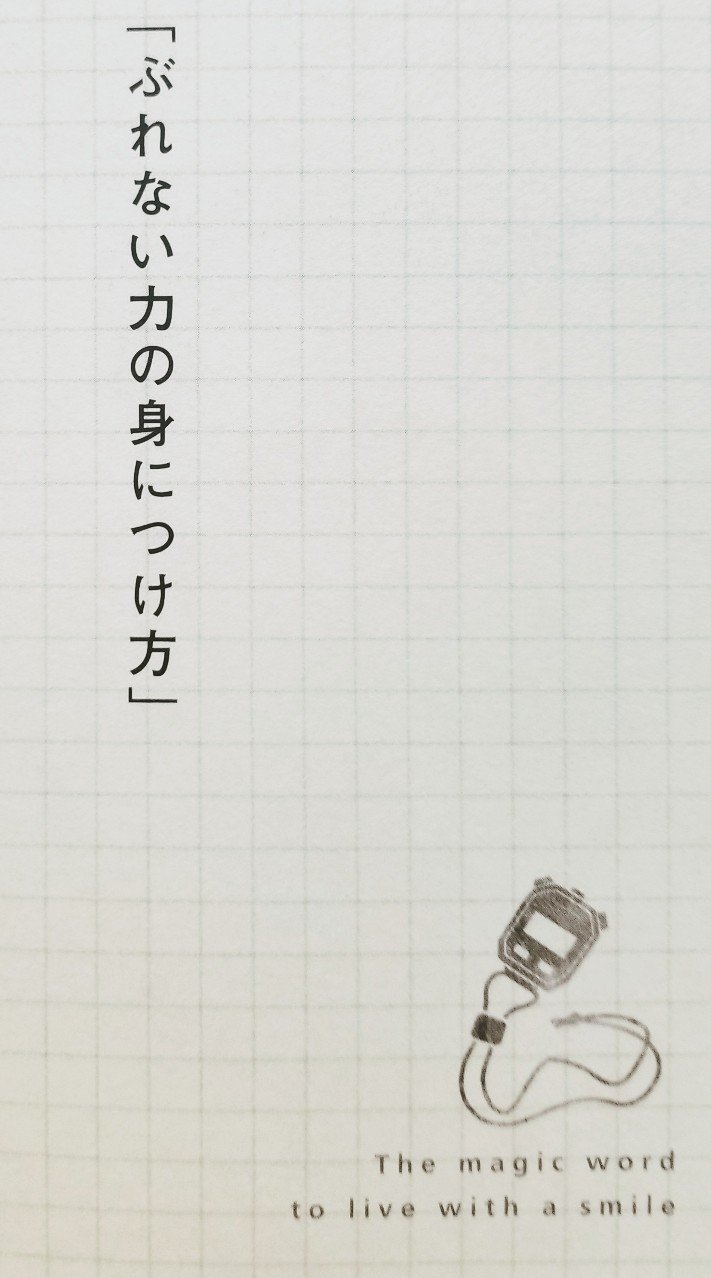 「ぶれない力の身につけ方」
The magic word
to live with a smile